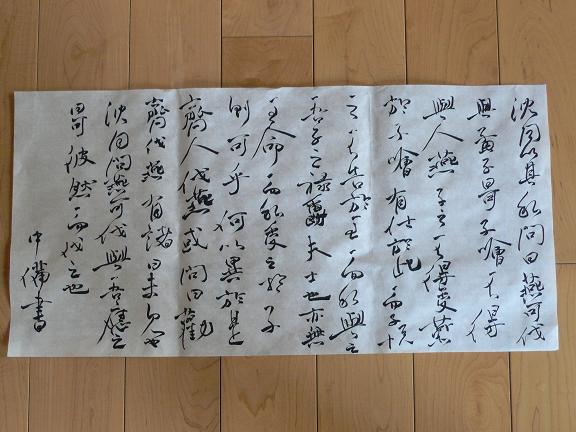 沈同以其私問曰燕可伐
與孟子曰可子噲不得
與人燕子之不得受燕
於子噲有仕於此而子悦
之不告於王而私與之
吾子之祿爵夫士也亦無
王命而私受之於子
則可乎何以異於是
齊人伐燕或問曰勸
齊伐燕有諸曰未也
沈同問燕可伐與吾應之
曰可彼然而伐之也
中書